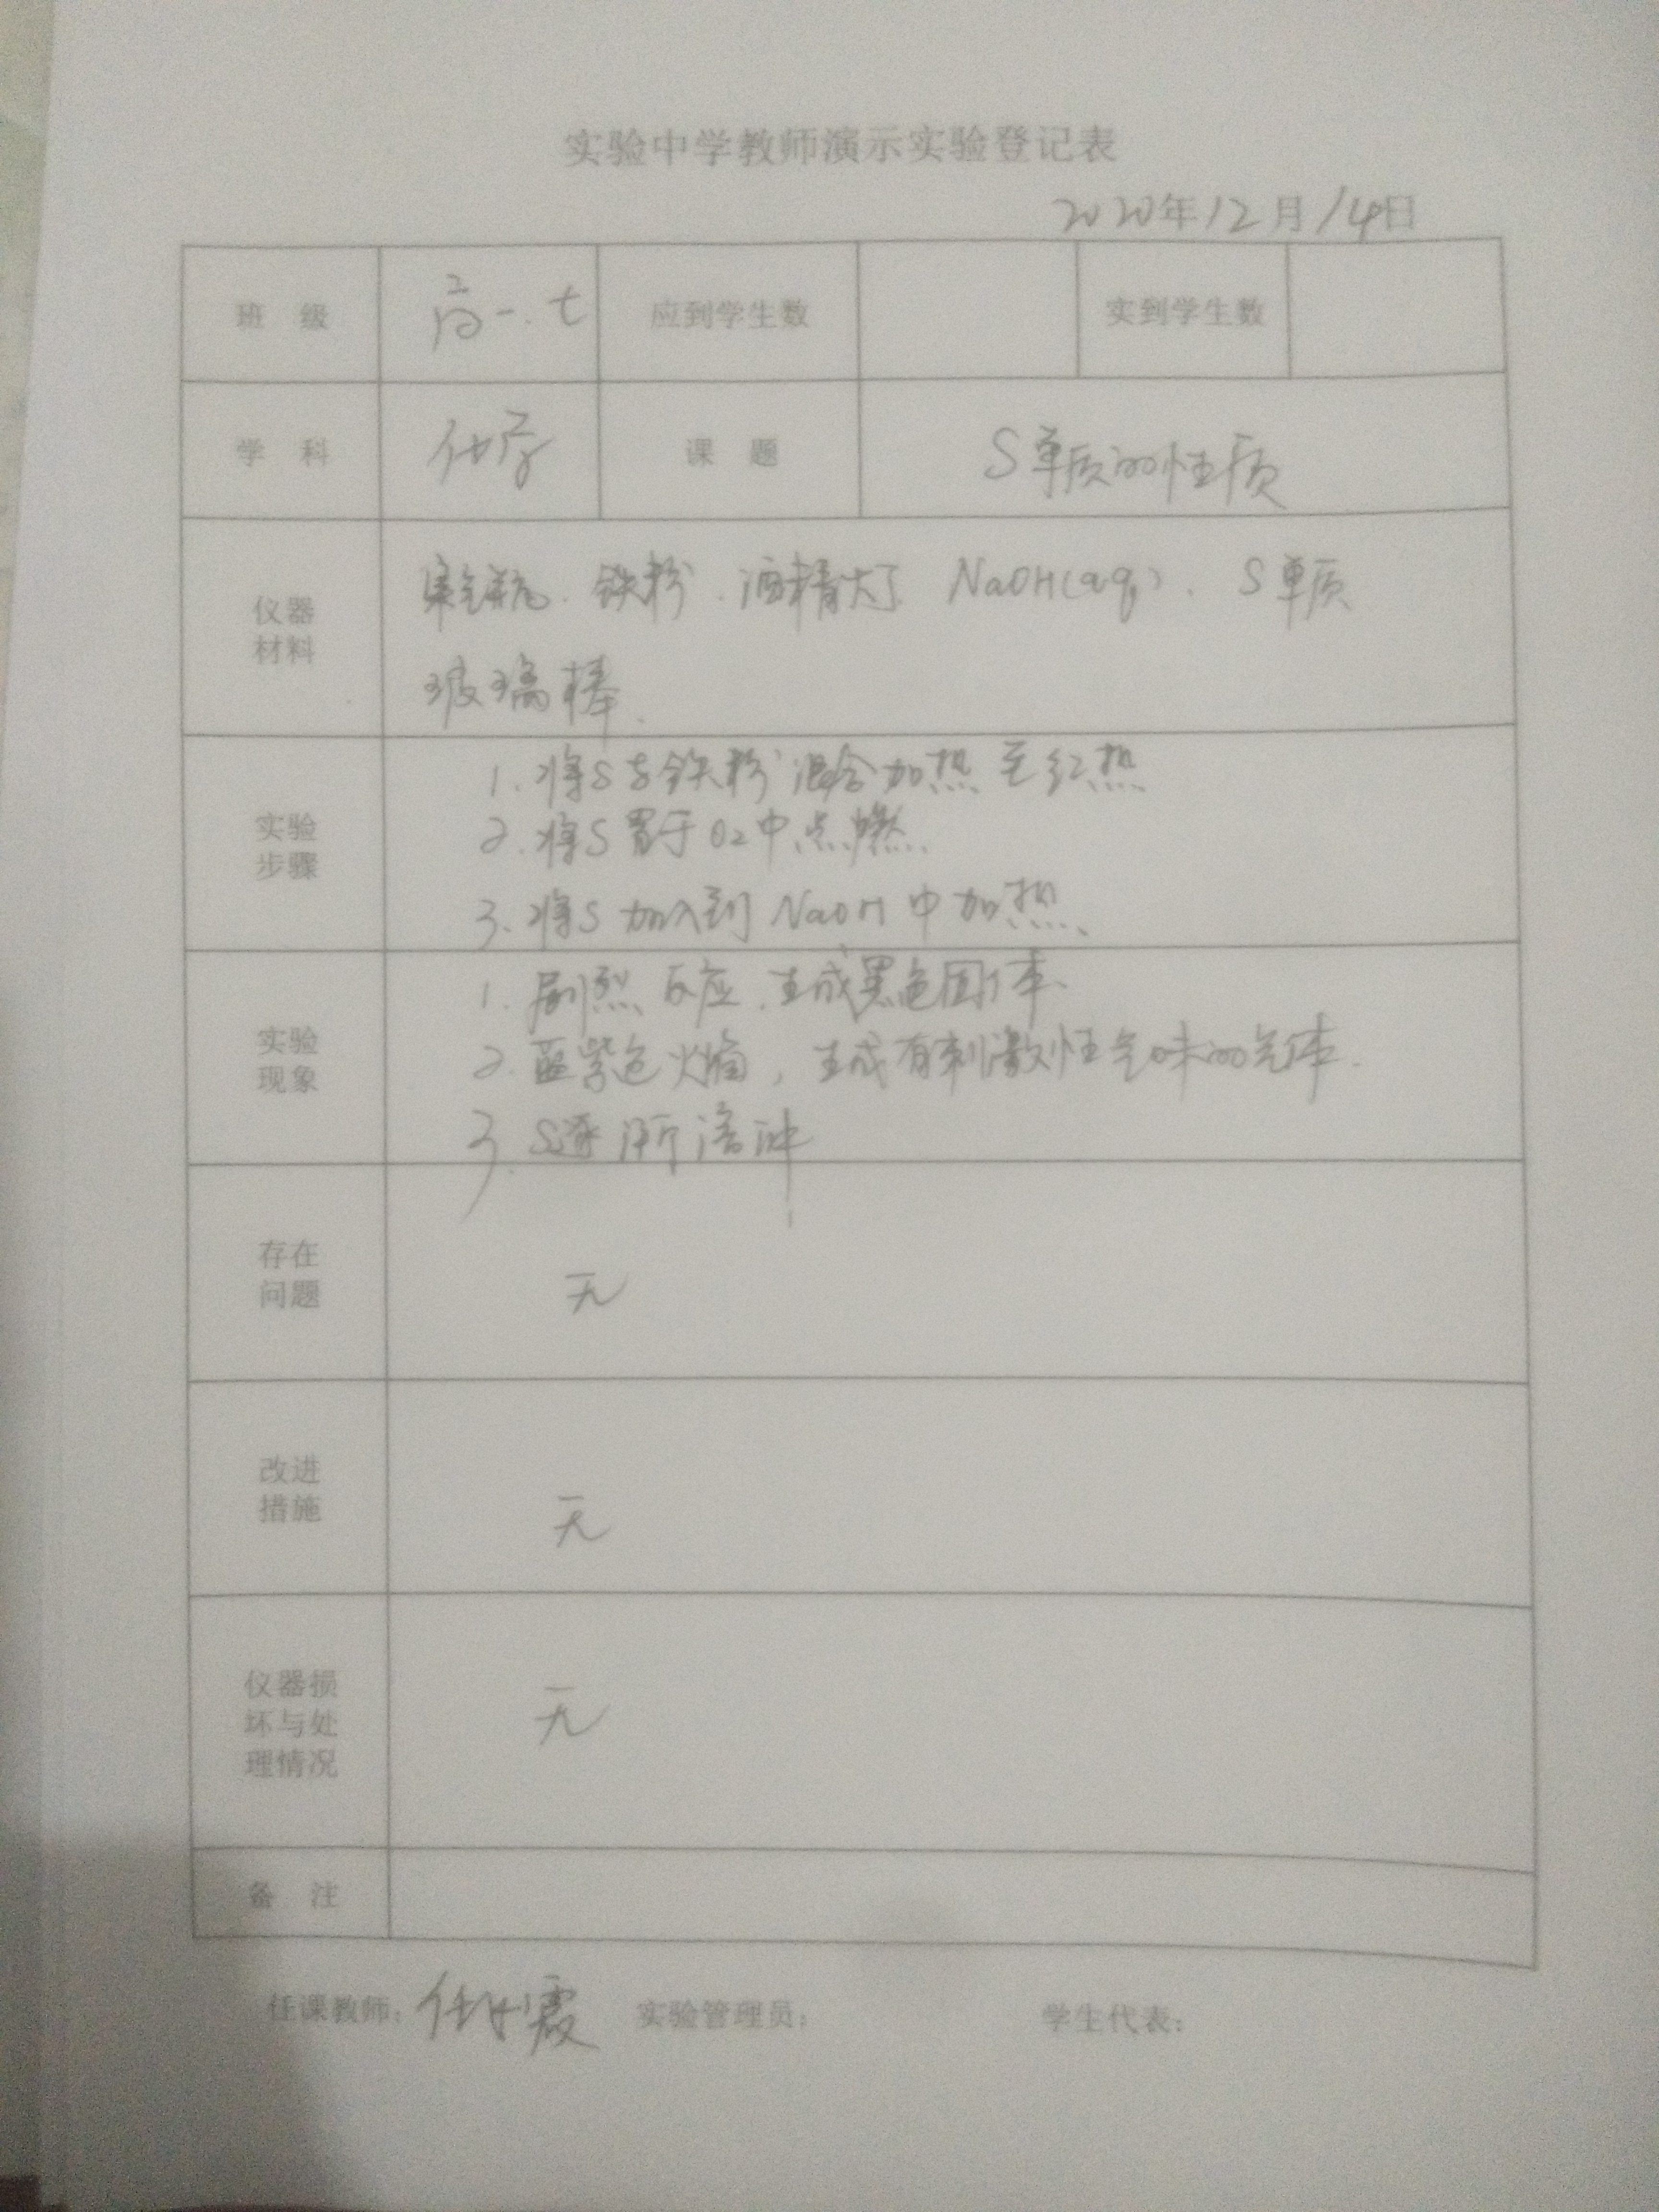 实验中学教师演示实验登记表
2020年12月14日
班 级 高一.七 应到学生数 实到学生数
学 科 化学 课 题 S单质的性质
仪器
材料
集气瓶. 铁粉. 酒精灯. NaOH(aq). S单质
玻璃棒.
实验
步骤
1. 将S与铁粉混合加热至红热
2. 将S置于O2中点燃.
3. 将S加入到NaOH中加热.
实验
现象
1. 剧烈反应.生成黑色固体.
2. 蓝紫色火焰，生成有刺激性气味的气体.
3. S逐渐溶
存在
问题
无
改进
措施
无
仪器损
坏与处
理情况
无
备 注
任课教师: 任 霞 实验管理员: 学生代表: